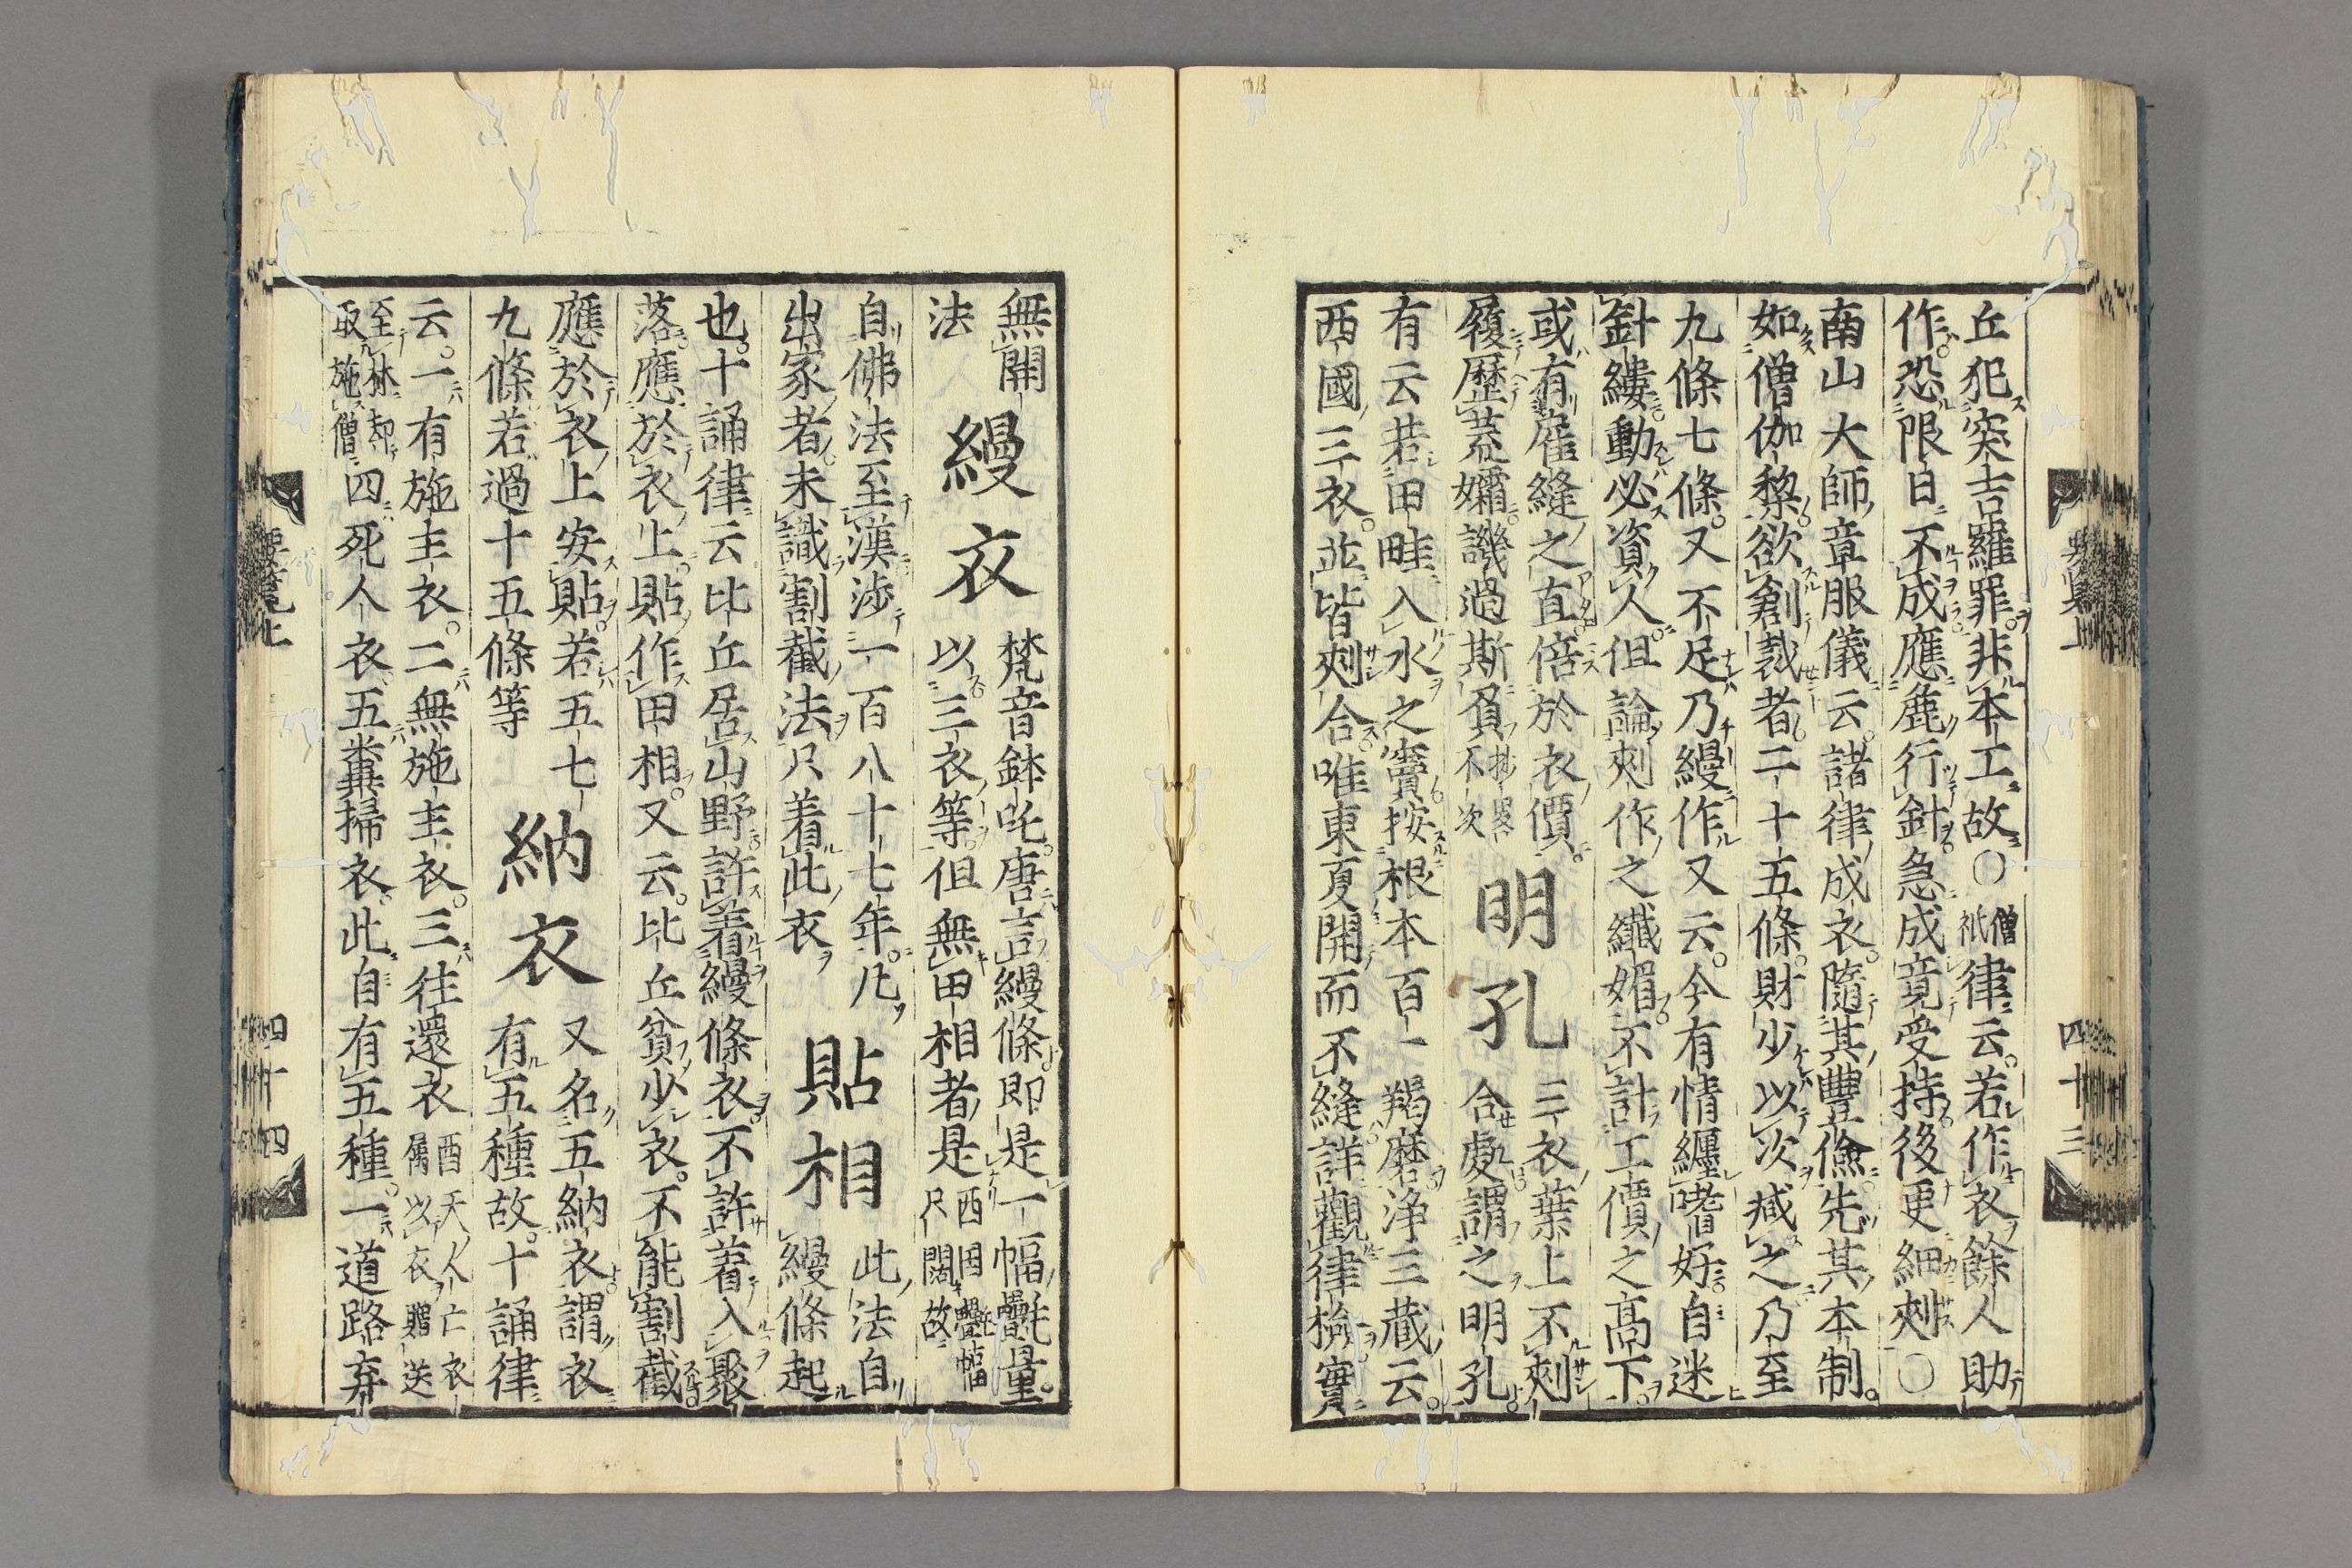 丘犯突吉羅罪非本工故〇僧祇律云若作衣餘人助
作恐限日不成應麁行針急成竟受持後更細刾〇
南山大師章服儀云諸律成衣隨其豐儉先其本制
如僧伽黎欲創裁者二十五條財少以次減之乃至
九條七條又不足乃縵作又云今有情纏嗜好自迷
針縷動必資人但論刾作之纖媚不計工價之高下
或有雇縫之直倍於衣價
明孔
三衣葉上不刾
履歷荒嬭譏過斯負
不次
合處謂之明孔
有云若田畦入水之竇按根本百一羯磨淨三藏云
西國三衣並皆刾合唯東夏開而不縫詳觀律檢實
四十三
無開
縵衣
梵音鉢吒唐言縵條即是一幅氎量
法
以三衣等但無田相者是西国氎幅尺闊故
自佛法至漢涉一百八十七年凡
貼相
此法自
出家者未識割截法只着此衣
縵條起
也十誦律云比丘居山野許着縵條衣不許着入聚
落應於衣上貼作田相又云比丘貧少衣不能割截
應於衣上安貼若五七
納衣
又名五納衣謂衣
九條若過十五條等
有五種故十誦律
云一有施主衣二無施主衣三往還衣酉天人亡衣属以衣贈送
至林却取施僧四死人衣五糞掃衣此自有五種一道路弃
要覽上
四十四